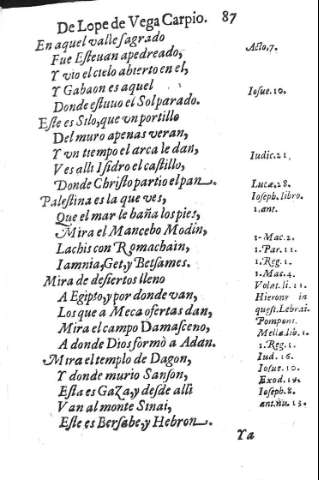 De Lope de Vega Carpio. 87
En aquel valle sagrado
Fue Esteuan apedreado, Acto.7.
Y vio el cielo abierto en el,
Y Gabaon es aquel Iosue.10.
Donde estuuo el Sol parado.
Este es Silo, que vn portillo
Del muro apenas veran,
Y vn tiempo el arca le dan, Iudic.21.
Ves alli Isidro el castillo,
Donde Christo partio el pan. Luca.28.
Palestina es la que ves, Ioseph. libro.
Que el mar le baña los pies, 1.ant.
Mira el Mancebo Modin, 1. Mac.2.
Lachis con Romachain, 1. Par.11.
Iamnia, Get, y Betsames. 1. Reg.1.
Mira de desiertos lleno 1. Mac.4.
A Egipto, y por donde van, Volat. li.11.
Los que a Meca ofertas dan, Hieronr in
Mira el campo Damasceno, quest. Lebrai.
A donde Dios formò a Adan. Pompont.
Mira el templo de Dagon, Mella. lib.1.
Y donde murio Sanson, 1. Reg.1.
Esta es Gaza, y desde alli Iud.16.
Van al monte Sinai, Iosue.10.
Este es Bersabe, y Hebron. Exod.18.
Ioseph.8.
ant.nu.13.
Ya